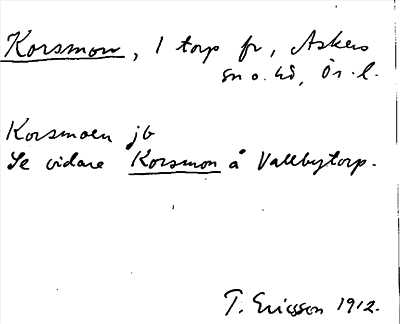 Korsmon, 1 torp fr, Askers
sn o. hd, Ör. l.
Korsmoen jb
Se vidare Korsmon å Vallbytorp.
T. Ericsson 1912.